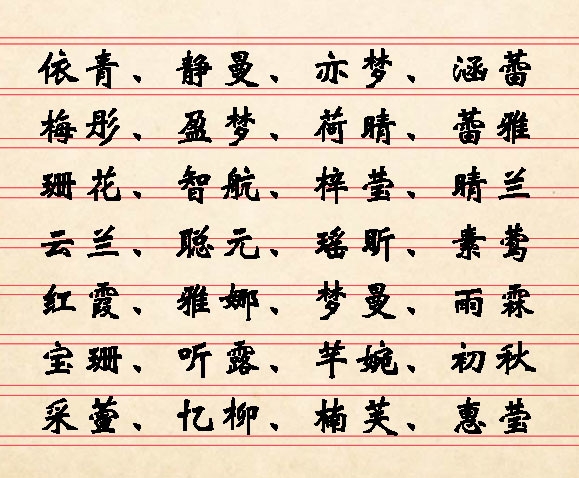 依青、静曼、亦梦、涵蕾
梅彤、盈梦、荷晴、蕾雅
珊花、智航、梓莹、晴兰
云兰、聪元、瑶昕、素莺
红霞、雅娜、梦曼、雨霖
宝珊、听露、芊婉、初秋
采萱、忆柳、楠芙、惠莹